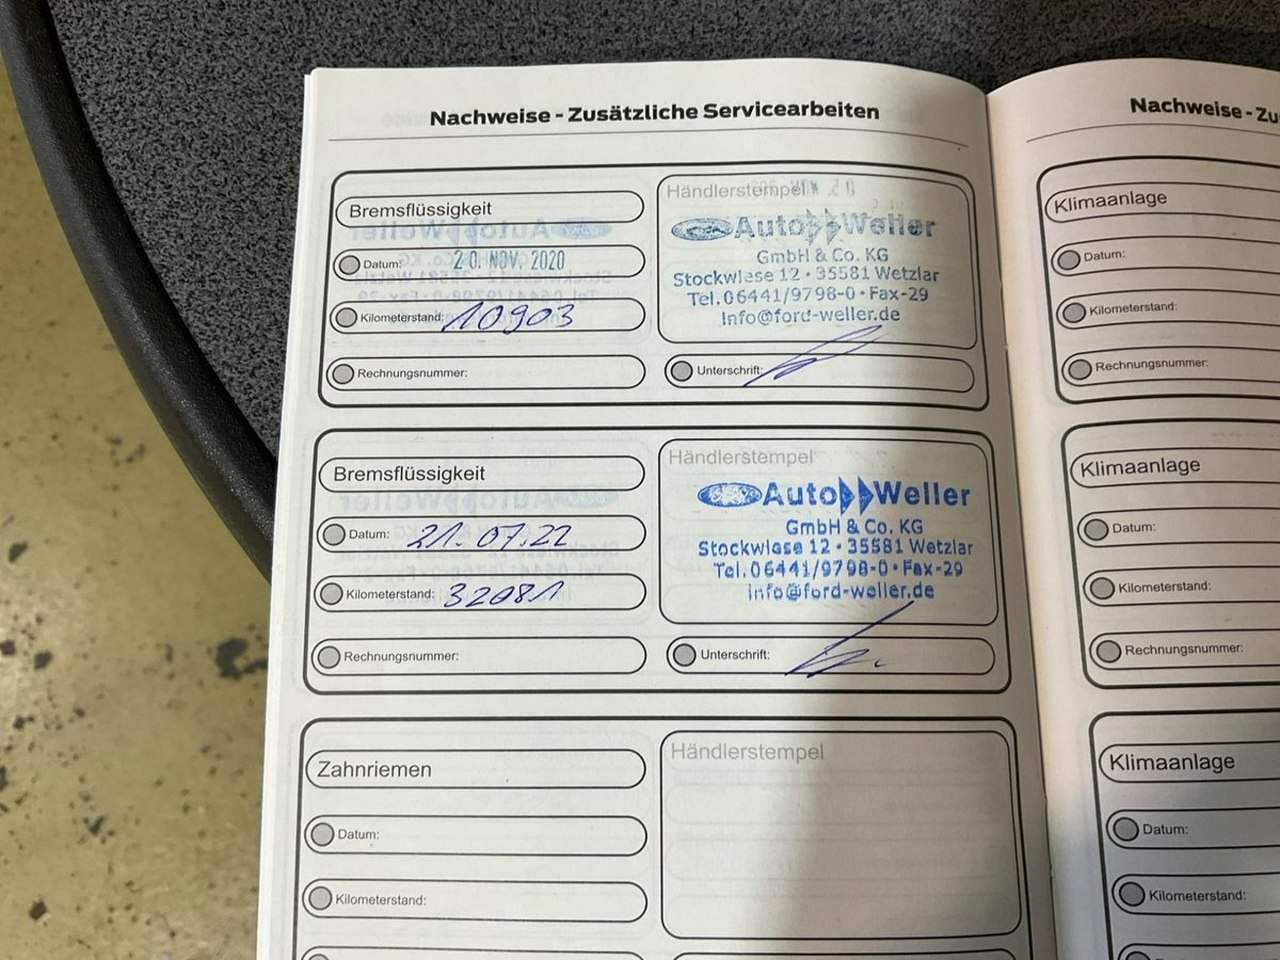 Nachweise - Zusätzliche Servicearbeiten
Bremsflüssigkeit
Datum: 20. NOV. 2020
Kilometerstand: 10903
Rechnungsnummer:
Händlerstempel
Auto Weller
GmbH & Co. KG
Stockwiese 12 • 35581 Wetzlar
Tel. 06441/9798-0 • Fax-29
Info@ford-weller.de
Unterschrift:
Bremsflüssigkeit
Datum: 21.07.22
Kilometerstand: 32081
Rechnungsnummer:
Händlerstempel
Auto Weller
GmbH & Co. KG
Stockwiese 12 • 35581 Wetzlar
Tel. 06441/9798-0 • Fax-29
info@ford-weller.de
Unterschrift:
Zahnriemen
Datum:
Kilometerstand:
Händlerstempel
Nachweise - Zu
Klimaanlage
Datum:
Kilometerstand:
Rechnungsnummer:
Klimaanlage
Datum:
Kilometerstand:
Rechnungsnummer:
Klimaanlage
Datum:
Kilometerstand: